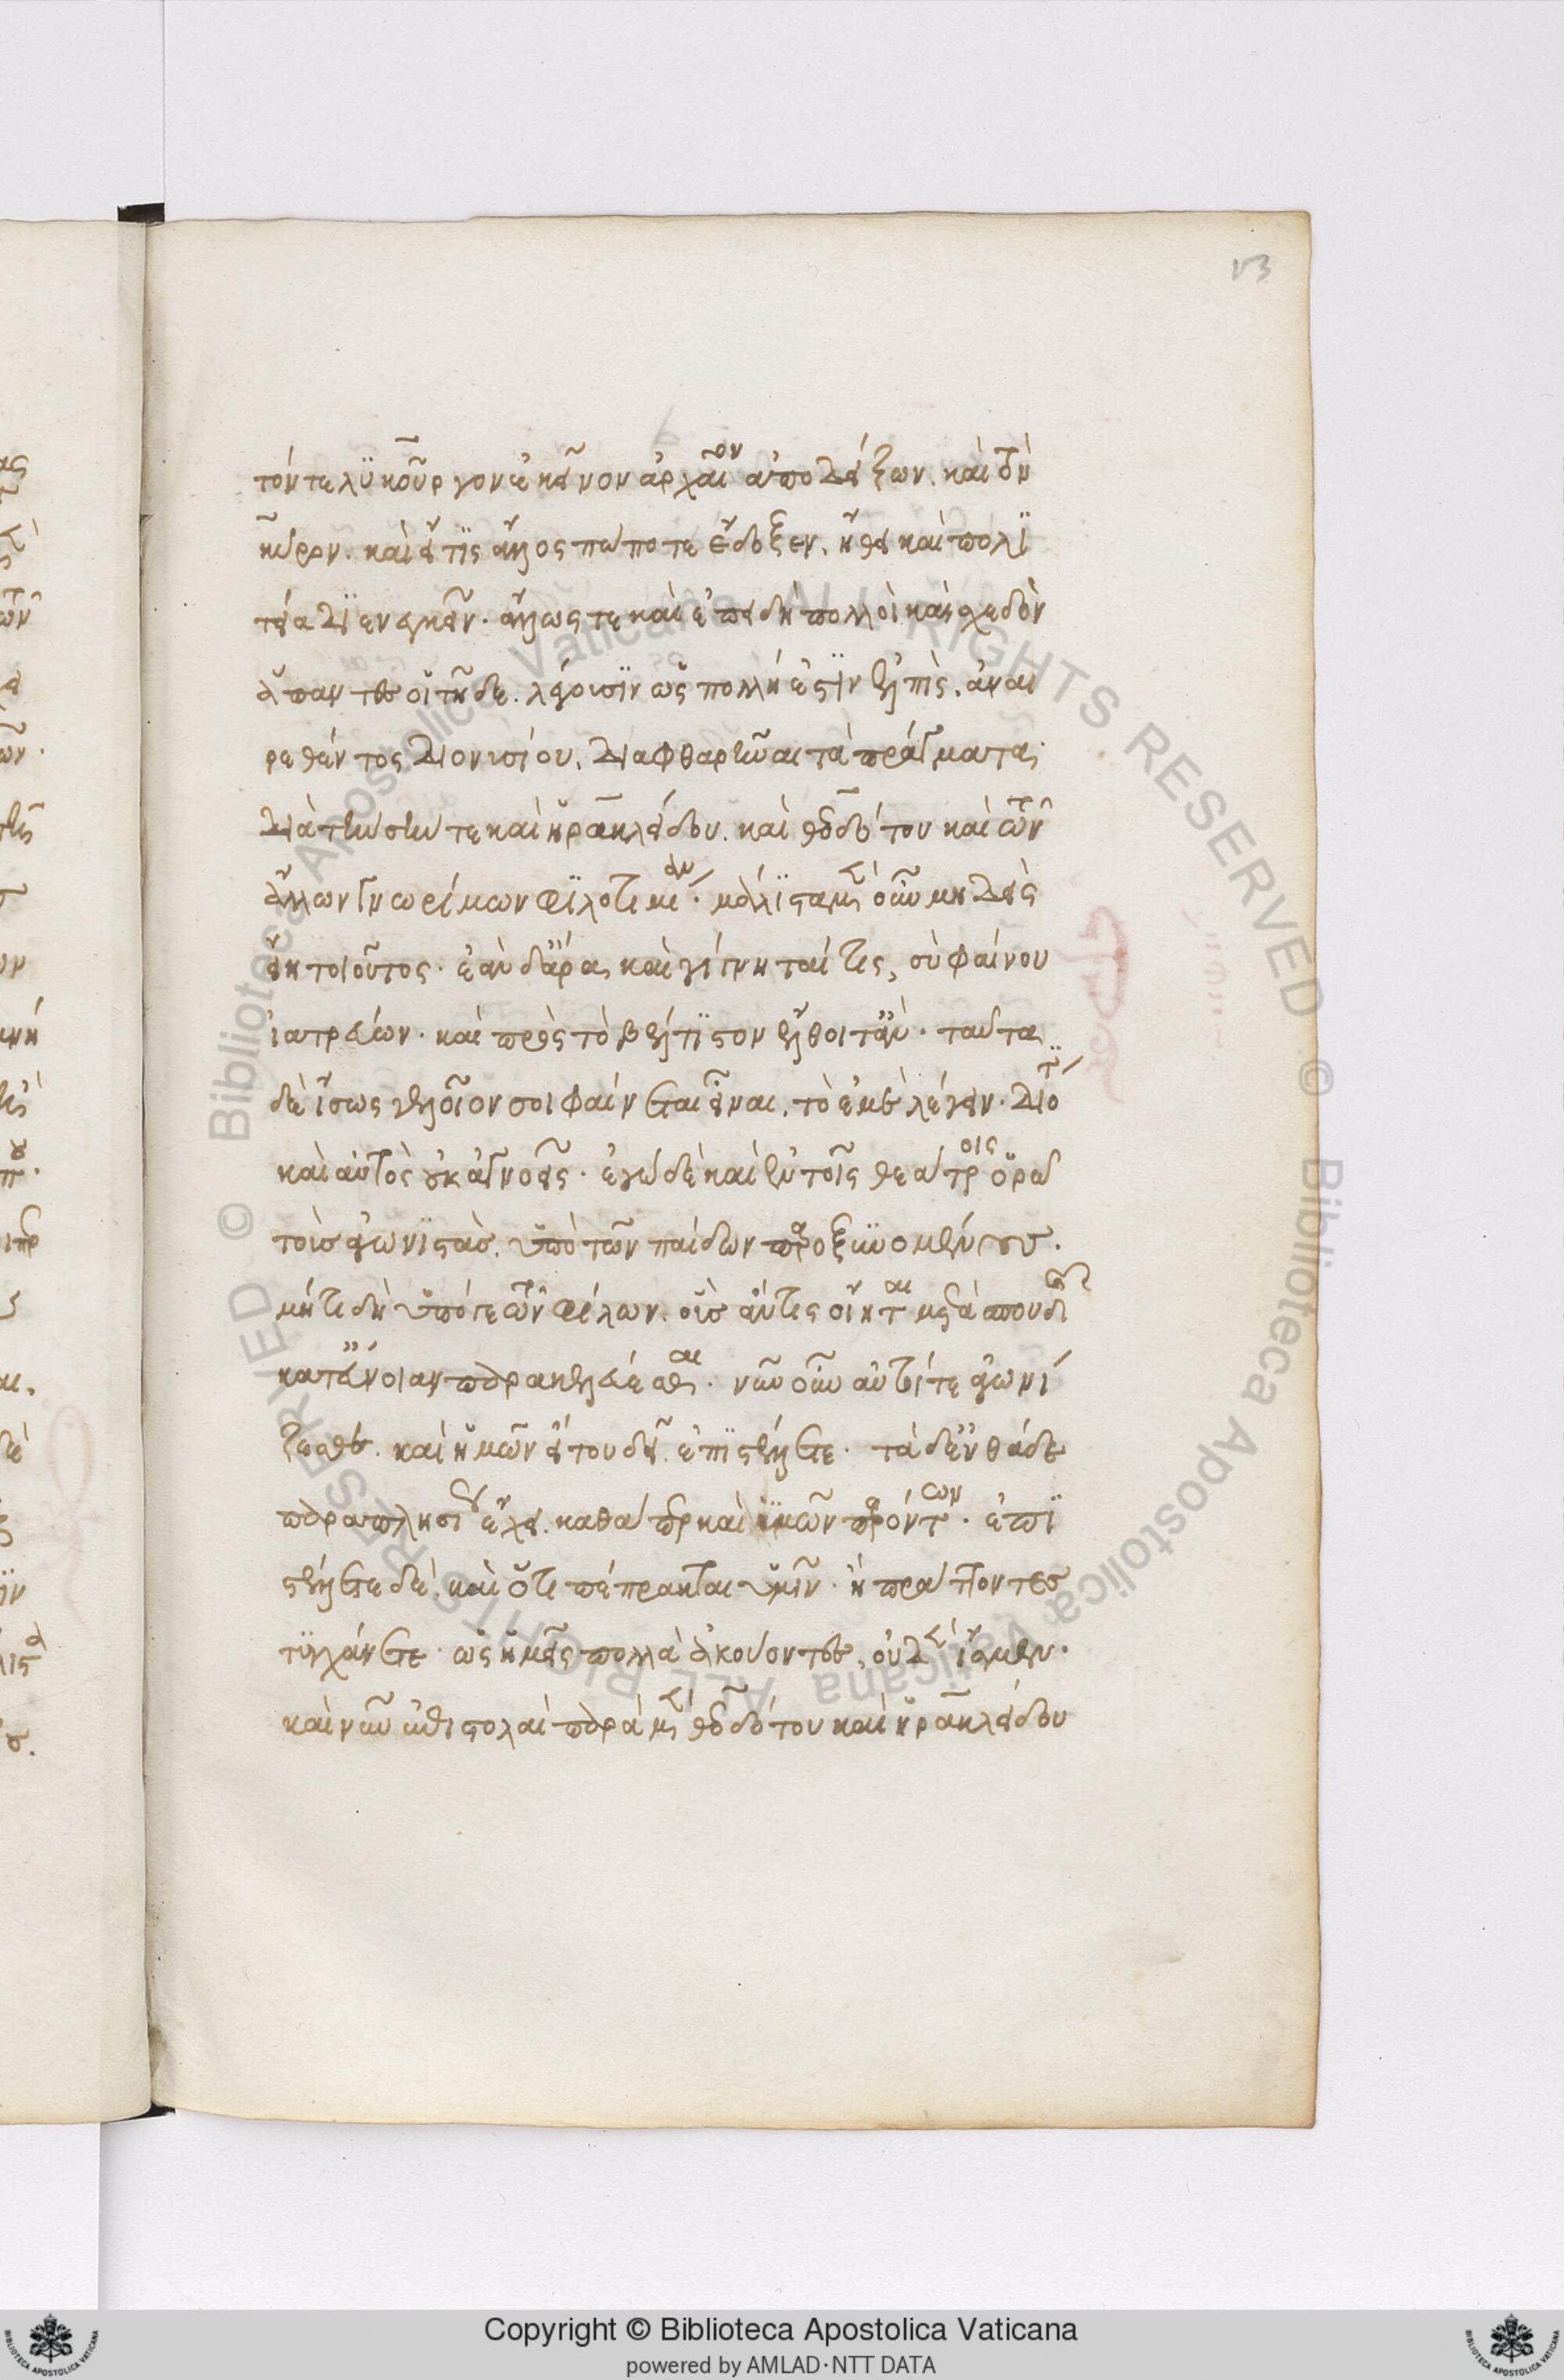 13
τόν τε λϋκοῦργον ἐκεῖνον ἀρχαῖον ἀποδείξων. καὶ τὸν
κῦρον. καὶ εἴ τϊς ἄλλος πώποτε ἔδοξεν. ἤθει καὶ πολϊ
τεία δϊενεγκεῖν. ἄλλως τε καὶ ἐπειδὴ πολλοὶ καὶ σχεδὸν
ἅπαντες οἱ τῇδε. λέγουσϊν ὡς πολλή ἐστϊν ἐλπὶς. ἀναι
ρεθέντος Διονυσίου. διαφθαρῆναι τὰ πράγματα.
διὰ τὴν σήν τε καὶ ἡρακλείδου. καὶ θεοδότου καὶ τῶν
ἄλλων γνωρίμων φϊλοτιμίαν. μάλϊστα μὲν οὖν μηδεὶς
εἴη τοιοῦτος. ἐὰν δ' ἄρα καὶ γίγνηταί τις, σὺ φαίνου
ἰατρεύων. καὶ πρὸς τὸ βέλτϊστον ἔλθοιτ' ἄν. ταῦτα
δὲ ἴσως γελοῖον σοι φαίνεται εἶναι. τὸ ἐμὲ λέγειν. διότϊ
καὶ αὐτὸς οὐκ ἀγνοεῖς. ἐγὼ δὲ καὶ ἐν τοῖς θεάτροις ὁρῶ
τοὺς ἀγωνϊστὰς. ὑπὸ τῶν παίδων παροξϋνομένους.
μήτι δὴ ὑπό γε τῶν φίλων. οὓς ἄν τις οἴηται μετὰ σπουδῆς
κατ' εὔνοιαν παρακελεύεσθαι. νῦν οὖν αὐτοί τε ἀγωνί
ζεσθε. καὶ ἡμῖν εἴ του δεῖ. ἐπϊστέλλετε. τὰ δ' ἐνθάδε
παραπλησίως ἔχει. καθάπερ καὶ ὑμῶν παρόντων. ἐπϊ
στέλλετε δὲ. καὶ ὅτι πέπρακται ὑμῖν. ἢ πράττοντες
τϋγχάνετε. ὡς ἡμεῖς πολλὰ ἀκούοντες, οὐδὲν ἴσμεν.
καὶ νῦν ἐπιστολαὶ παρὰ μὲν θεοδότου καὶ ἡρακλείδου
Copyright © Biblioteca Apostolica Vaticana
powered by AMLAD·NTT DATA